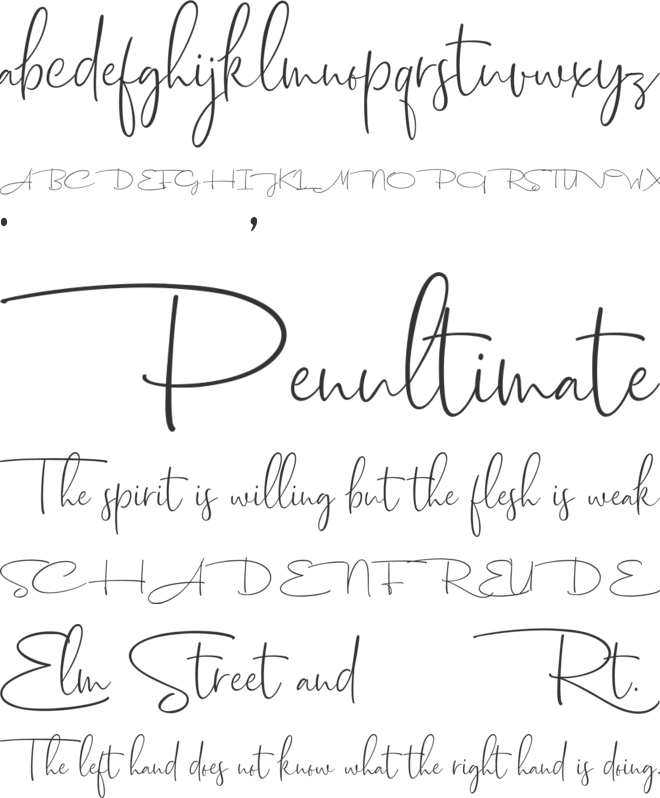 abcdefghijklmnopqrstuvwxyz
ABCDEFGHIJKLMNOPQRSTUVWX
. ,
Penultimate
The spirit is willing but the flesh is weak
SCHADENFREUDE
Elm Street and Rt.
The left hand does not know what the right hand is doing.